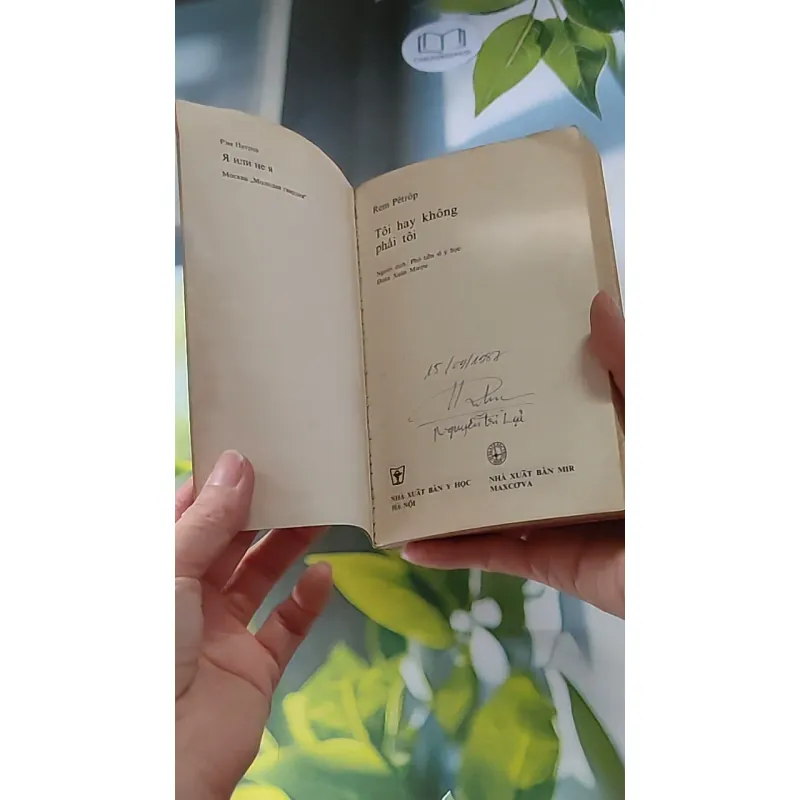 Рэм Петров
Я или не я
Москва „Молодая гвардия“
Rem Pêtrôp
Tôi hay không
phải tôi
Người dịch: Phó tiến sĩ y học
15/09/1987
Nguyễn Trí Lợi
NHÀ XUẤT BẢN Y HỌC
HÀ NỘI
NHÀ XUẤT BẢN MIR
MAXCƠVA